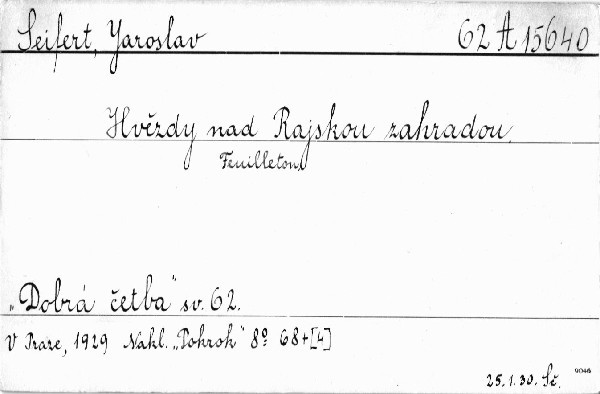 Seifert, Jaroslav 62 A 15640
Hvězdy nad Rajskou zahradou.
Feuilletony
„Dobrá četba" sv. 62.
V Praze, 1929 Nakl. „Pokrok" 8º 68+[4]
25.1.30. Sč. 9046